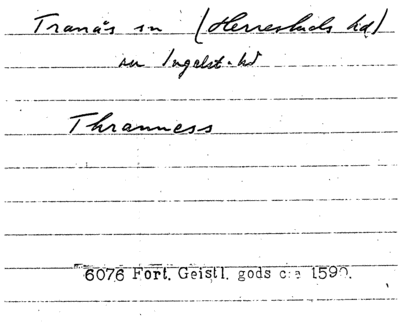 Tranås sn (Herrestads hd)
nu Ingelst. hd
Thranness
6076 Fort. Geistl. gods c:a 1590.